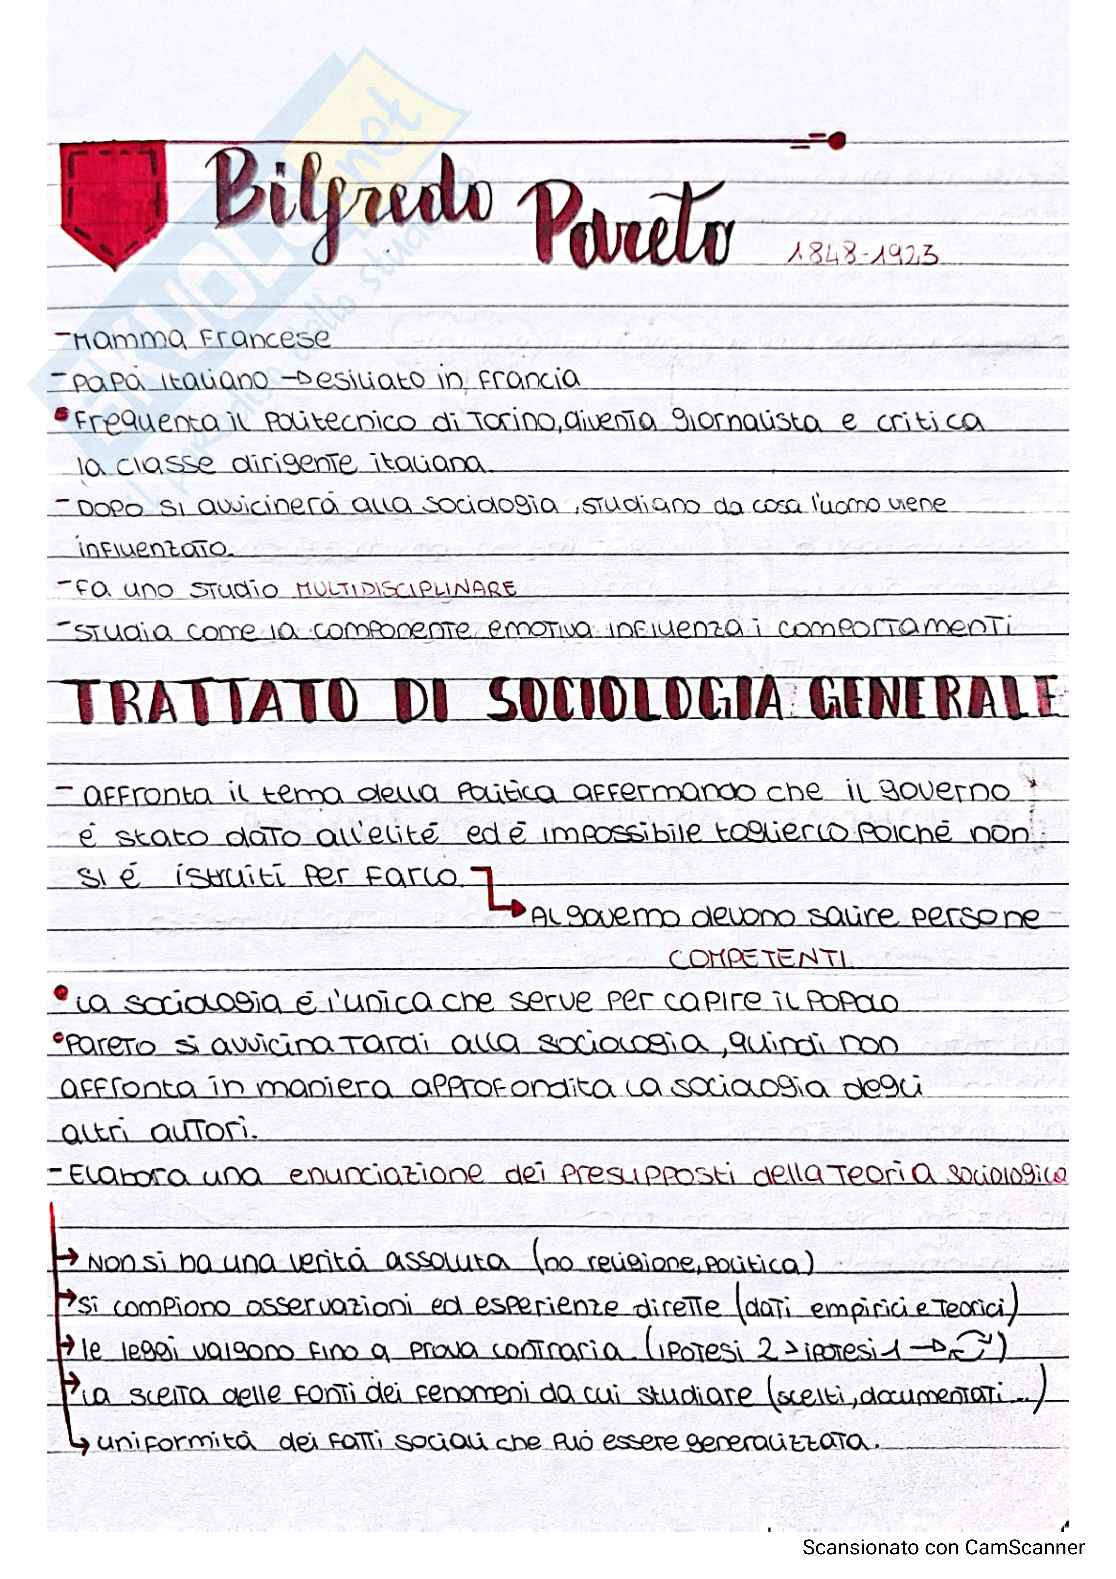 Bilfredo Pareto 1848-1923
- Mamma Francese
- Papá Italiano → esiliato in Francia
• Frequenta il Politecnico di Torino, diventa giornalista e critica
la classe dirigente italiana.
- Dopo si avvicinerá alla sociologia, studiano da cosa l'uomo viene
influenzato.
- Fa uno studio MULTIDISCIPLINARE
- Studia come la componente emotiva influenza i comportamenti
TRATTATO DI SOCIOLOGIA GENERALE
- Affronta il tema della Politica affermando che il governo
é stato dato all'elité ed é impossibile toglierlo poiché non
si é istruiti per farlo.
→ Al governo devono salire persone
COMPETENTI
• La sociologia é l'unica che serve per capire il popolo
• Pareto si avvicina tardi alla sociologia, quindi non
affronta in maniera approfondita la sociologia degli
altri autori.
- Elabora una enunciazione dei presupposti della teoria sociologica
→ Non si ha una veritá assoluta (no religione, politica)
→ Si compiono osservazioni ed esperienze dirette (dati empirici e teorici)
→ le leggi valgono fino a prova contraria. (ipotesi 2 > ipotesi 1 → )
→ La scelta delle fonti dei fenomeni da cui studiare (scelti, documentati...)
→ uniformitá dei fatti sociali che puó essere generalizzata.
Scansionato con CamScanner